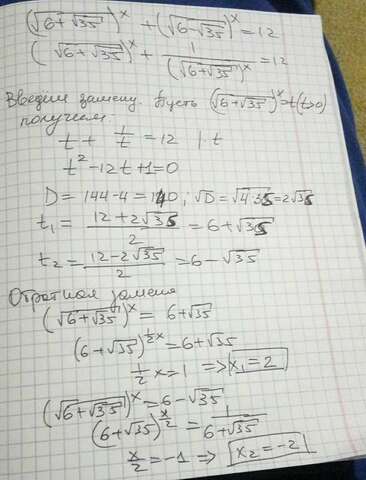 (√(6+√35))^x + (√(6-√35))^x = 12
(√(6+√35))^x + 1/(√(6+√35))^x = 12
Введём замену. Пусть (√(6+√35))^x = t (t>0)
получаем:
t + 1/t = 12 | · t
t² - 12t + 1 = 0
D = 144 - 4 = 140; √D = √(4·35) = 2√35
t₁ = (12 + 2√35)/2 = 6 + √35
t₂ = (12 - 2√35)/2 = 6 - √35
Обратная замена
(√(6+√35))^x = 6+√35
(6+√35)^(½x) = 6+√35
½x = 1 => x₁ = 2
(√(6+√35))^x = 6-√35
(6+√35)^(x/2) = 1/(6+√35)
x/2 = -1 => x₂ = -2